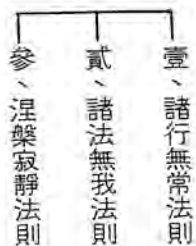 壹、諸行無常法則
貳、諸法無我法則
參、涅槃寂靜法則